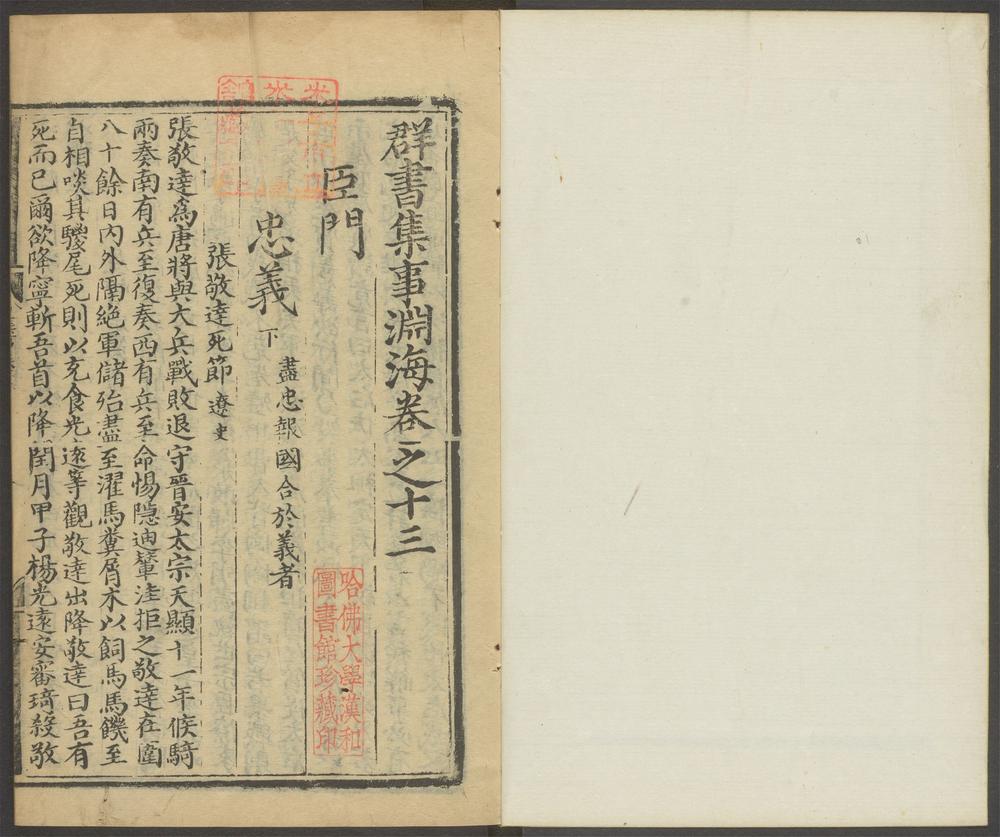 群書集事淵海卷之十三
臣門
忠義下 盡忠報國合於義者
張敬達死節 遼史
張敬達爲唐將與大兵戰敗退守晉安太宗天顯十一年候騎
兩奏南有兵至復奏西有兵至命惕隱迪輦洼拒之敬達在圍
八十餘日內外隔絕軍儲殆盡至濯馬糞屑木以飼馬馬饑至
自相啖其騣尾死則以充食光遠等觀敬達出降敬達曰吾有
死而已爾欲降寧斬吾首以降閏月甲子楊光遠安審琦殺敬
哈佛大學漢和
圖書館珍藏印